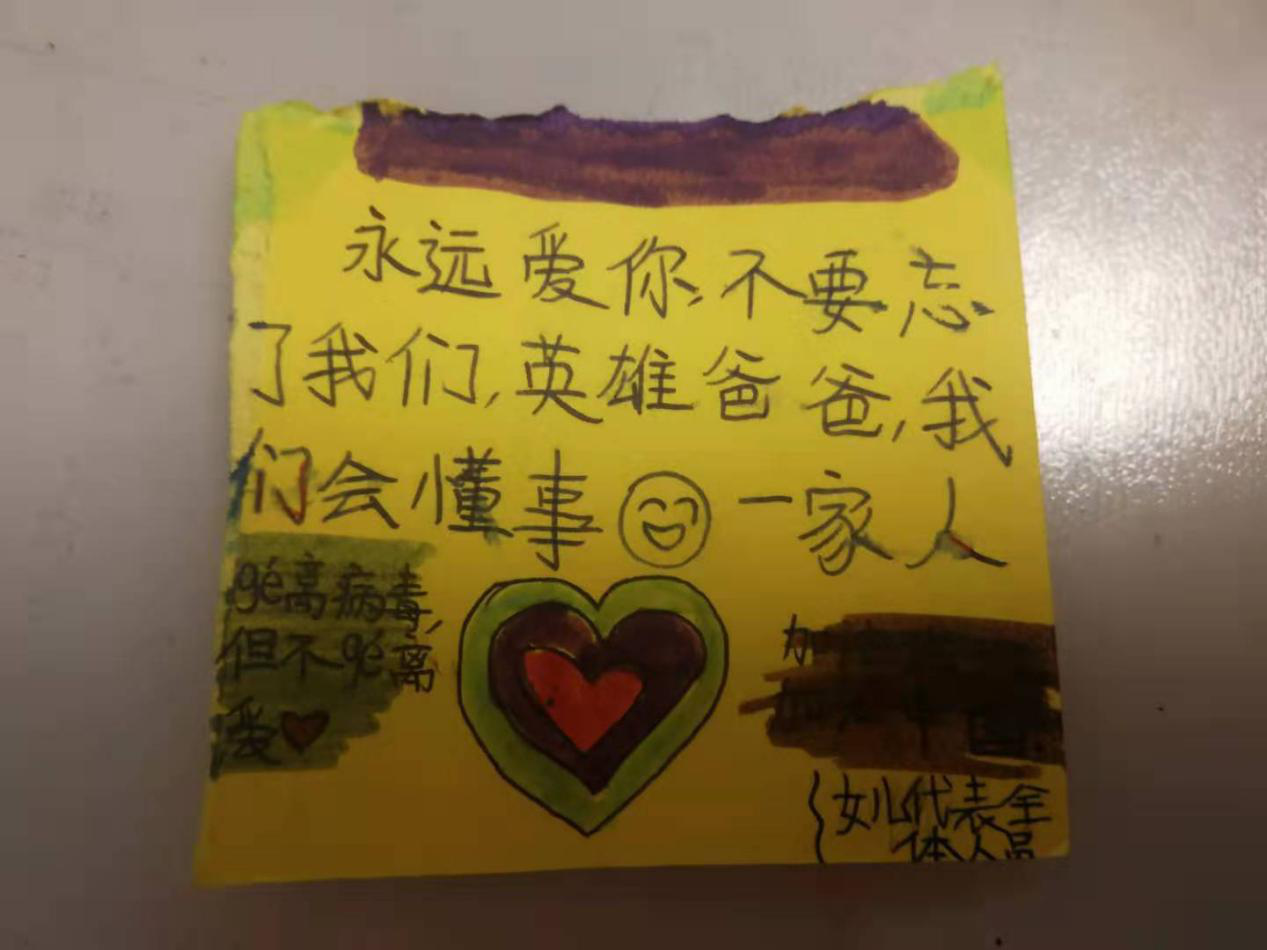 永远爱你,不要忘
了我们,英雄爸爸,我
们会懂事 一家人
gé离病毒,
但不gé离
爱
加
加 中国
女儿代表全
体人员